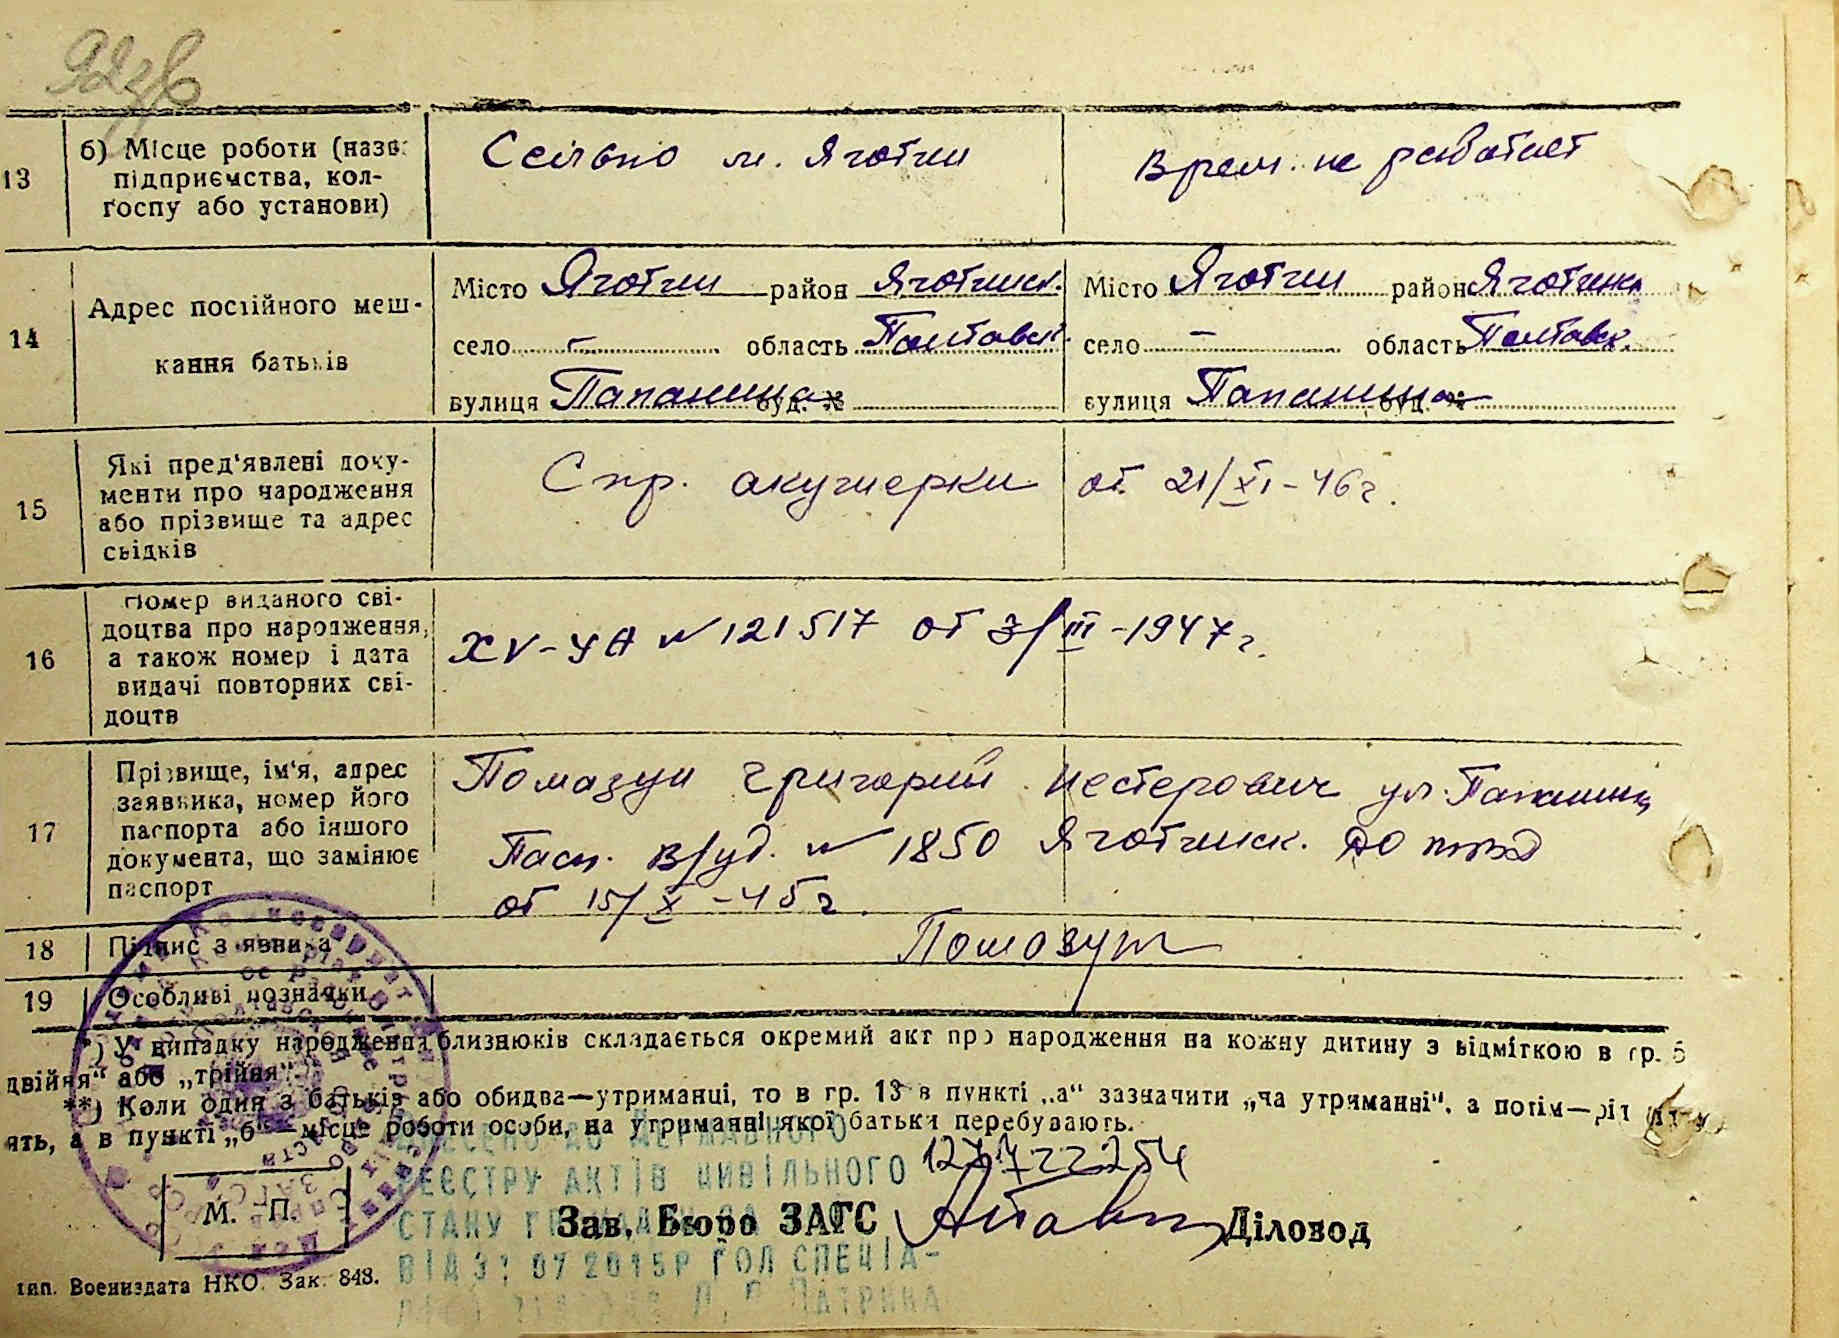 13
б) Місце роботи (назв:
підприємства, кол-
госпу або установи)
Сельпо м. Яготин
Врем. не работает
14
Адрес постійного меш-
кання батьків
Місто Яготин район Яготинск.
село – область Полтавск.
вулиця Папанина буд. №
Місто Яготин район Яготинск
село – область Полтавск.
вулиця Папанина буд. №
15
Які пред‘явлені доку-
менти про народження
або прізвище та адрес
свідків
Спр. акушерки от 21/XI-46 г.
16
Номер виданого сві-
доцтва про народження,
а також номер і дата
видачі повторних сві-
доцтв
XV-УА № 121517 от 3/III-1947 г.
17
Прізвище, ім‘я, адрес
заявника, номер його
паспорта або іншого
документа, що замінює
паспорт
Помазун Григорий Нестерович ул. Папанина
Пасп. в/уд. № 1850 Яготинск.
от 15/X-45 г.
18
Підпис заявника
Помазун
19
Особливі позначки
*) У випадку народження близнюків складається окремий акт про народження на кожну дитину з відміткою в гр. 5
двійня“ або „трійня“.
**) Коли один з батьків або обидва—утриманці, то в гр. 13 в пункті „а“ зазначити „на утриманні“, а потім—рід
ять, а в пункті „б“—місце роботи особи, на утриманні якої батьки перебувають.
ВНЕСЕНО ДО ДЕРЖАВНОГО
РЕЄСТРУ АКТІВ ЦИВІЛЬНОГО
СТАНУ ГРОМАДЯН ЗА №
07 2015Р ГОЛ СПЕЦІА-
М. П.
Зав. Бюро ЗАГС
Діловод
тип. Воениздата НКО. Зак. 848.